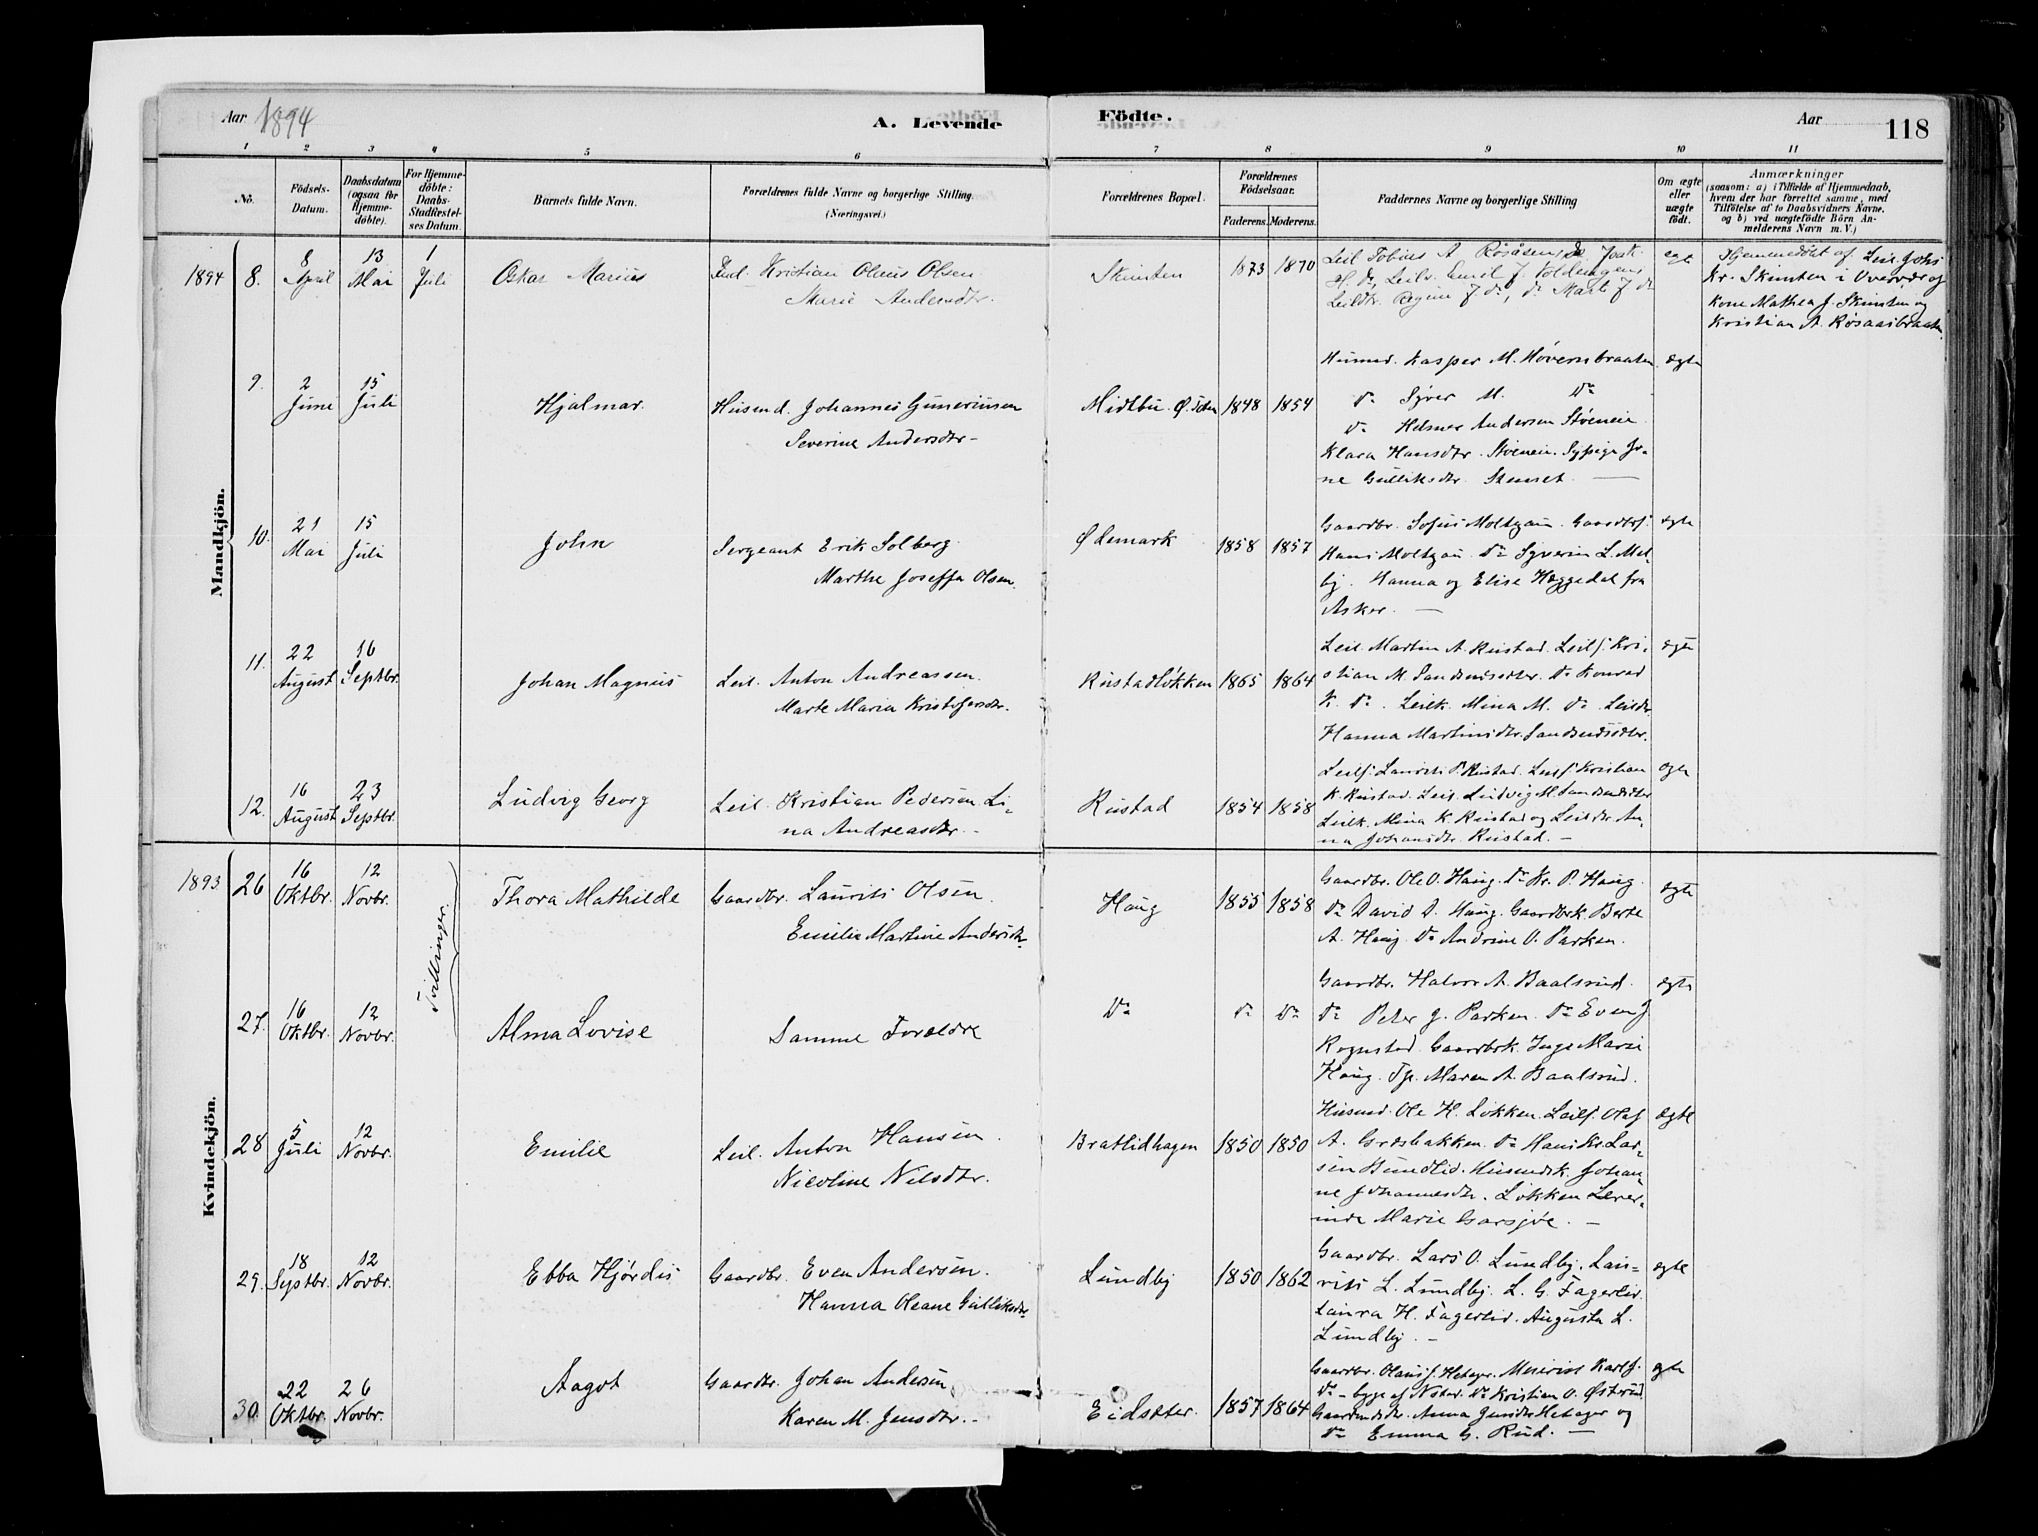 Aar 1894
A. Levende
Fødte.
Aar
118
1 2 3 4 5 6 7 8 9 10 11
No.
Födsels-Datum.
Daabsdatum (ogsaa for Hjemme-döbte).
For Hjemme-döbte: Daabs-Stadfæstel-ses Datum.
Barnets fulde Navn.
Forældrenes fulde Navne og borgerlige Stilling.
(Næringsvei.)
Forældrenes Bopæl.
Forældrenes Födselsaar.
Faderens. Moderens.
Faddernes Navne og borgerlige Stilling
Om ægte eller uægte födt.
Anmærkninger
(saasom: a) i Tilfælde af Hjemmedaab,
hvem der har forrettet samme, med
Tilföielse af to Daabsvidners Navne.
og b) ved uægtefödte Börn An-
melderens Navn m. V.)
Mandkjön.
1894 8. 8 April 13 Mai 1 Juli Oskar Marius
Kristian Oleus Olsen
Marie Andersdtr.
Skinten 1873 1870
Leil Tobias A
egt
Hjemmedöbt af Leil Johs
Kr. Skinten i Overvær af
Kone Mathea J. Skinten og
Kristian A. Røsaasbraaten
9. 2 Juni 15 Juli Hjalmar.
Husmd. Johannes Guneriusen
Severine Andersdtr-
Midtbu. Ø. 1848 1854
Husmd. Kasper M. Høversbraaten
Do Syver M. Do
Do Helmer Andersen Støeneie
Klara Hansdtr. Støeneie. Sypige Jo-
ne Gulliksdtr. Stenset. —
ægte
10. 21 Mai 15 Juli John
Sergeant Erik Solberg.
Marthe Joseffa Olsen.
Ødemark 1858 1857
Gaardbr. Sofus Moltzau. Gaardbrs.
Hans Moltzau. Do Syverin L. Mel-
by. Hanna og Elise Hæggedal fra
Asker. —
egte
11. 22 August 16 Septbr. Johan Magnus
Leil. Anton Andreassen.
Marte Maria Kristofersdtr.
Rustadløkken 1865 1864
Leil. Martin A. Rustad. Leilf. Kri-
stian M. Do Konrad
K. Do. Leilk. Mina M. Do. Leildr.
Hanna Martinsdtr.
egte
12. 16 August 23 Septbr. Ludvig Georg
Leil. Kristian Pedersen Li-
na Andreasdtr. -
Rustad 1854 1858
Leilf. Laurits P. Rustad. Leilf. Kristian
K. Rustad. Leil. Ludvig M.
Leilk. Mina K. Rustad og Leildtr. An-
na Johansdtr. Rustad. -
egte
Kvindekjön.
1893 26 16 Oktbr. 12 Novbr. Tvillinger. Thora Mathilde
Gaardbr. Laurits Olsen.
Emilie Martine Andersdtr.
Haug 1855 1858
Gaardbr. Ole O. Haug. Do Kr. P. Haug.
Do David D. Haug. Gaardbrk. Berte
A. Haug. Do Andrine O. Parken.
egte
27. 16 Oktbr. 12 Novbr. Alma Lovise
Samme Forældre
Do Do Do
Gaardbr. Halvor A. Baalsrud.
Do Peter G. Parken. Do Even J.
Rognstad. Gaardbrk. Inge Marie
Haug. Tp. Maren A. Baalsrud.
egte
28 5 Juli 12 Novbr. Emilie
Leil. Anton Hansen.
Nicoline Nilsdtr.
Bratlidhagen 1850 1850
Husmd. Ole H. Løkken. Leilf. Olaf
A. Græsbakken. Do Hans Kr. Lar-
sen Bundlid. Husmdsk. Johan-
ne Johannesdtr. Løkken Lærer-
inde Marie Garsjøe. —
ægte
29. 18 Septbr. 12 Novbr. Ebba Hjørdis
Gaardbr. Even Andersen.
Hanna Oleane Gulliksdtr.
Lundby 1850 1862
Gaardbr. Lars O. Lundby. Lau-
rits L. Lundby. L. G. Fagerlid.
Laura H. Fagerlid. Augusta L.
Lundby. -
egte
30. 22 Oktbr. 26 Novbr. Aagot
Gaardbr. Johan Andersen
Karen M. Jensdtr. -
Eidsæter. 1857 1864
Gaardbr. Olaus J. Hetager. Karl J.
Do Kristian O. Østerud
Anna Hetager og
Do Emma G. Rud. —
egte